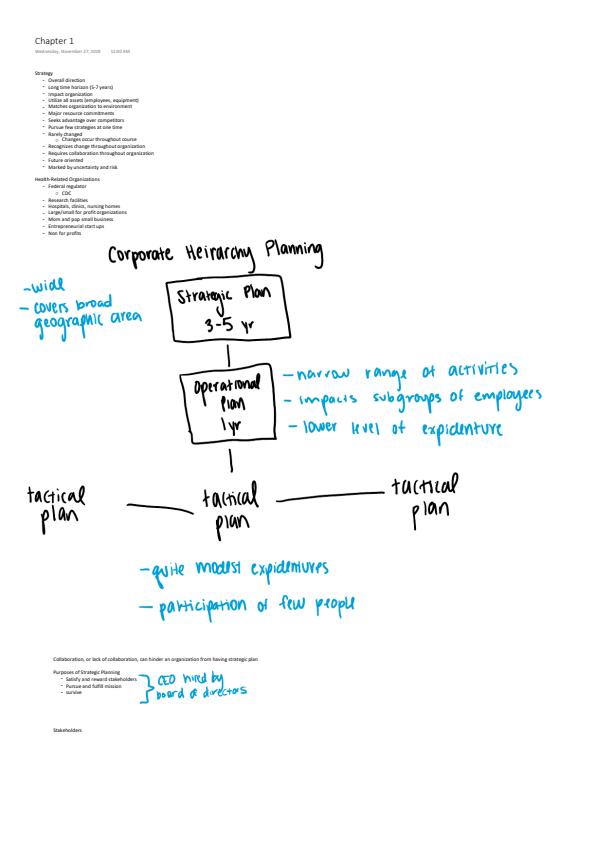 Chapter 1
Wednesday, November 27, 2019 12:00 AM
Strategy
- Overall direction
- Long time horizon (5-7 years)
- Impact organization
- Utilize all assets (employees, equipment)
- Matches organization to environment
- Major resource commitments
- Seeks advantage over competitors
- Pursue few strategies at one time
- Rarely changed
o Changes occur throughout course
- Recognizes change throughout organization
- Requires collaboration throughout organization
- Future oriented
- Marked by uncertainty and risk
Health-Related Organizations
- Federal regulator
o CDC
- Research facilities
- Hospitals, clinics, nursing homes
- Large/small for profit organizations
- Mom and pop small business
- Entrepreneurial start ups
- Non for profits
Corporate Heirarchy Planning
- wide
- covers broad
geographic area
Strategic Plan
3-5 yr
Operational
Plan
1 yr
- narrow range of activities
- impacts subgroups of employees
- lower level of expidenture
tactical
plan
tactical
plan
tactical
plan
- quite modest expidentures
- participation of few people
Collaboration, or lack of collaboration, can hinder an organization from having strategic plan
Purposes of Strategic Planning
- Satisfy and reward stakeholders
- Pursue and fulfill mission
- survive
CEO hired by
board of directors
Stakeholders